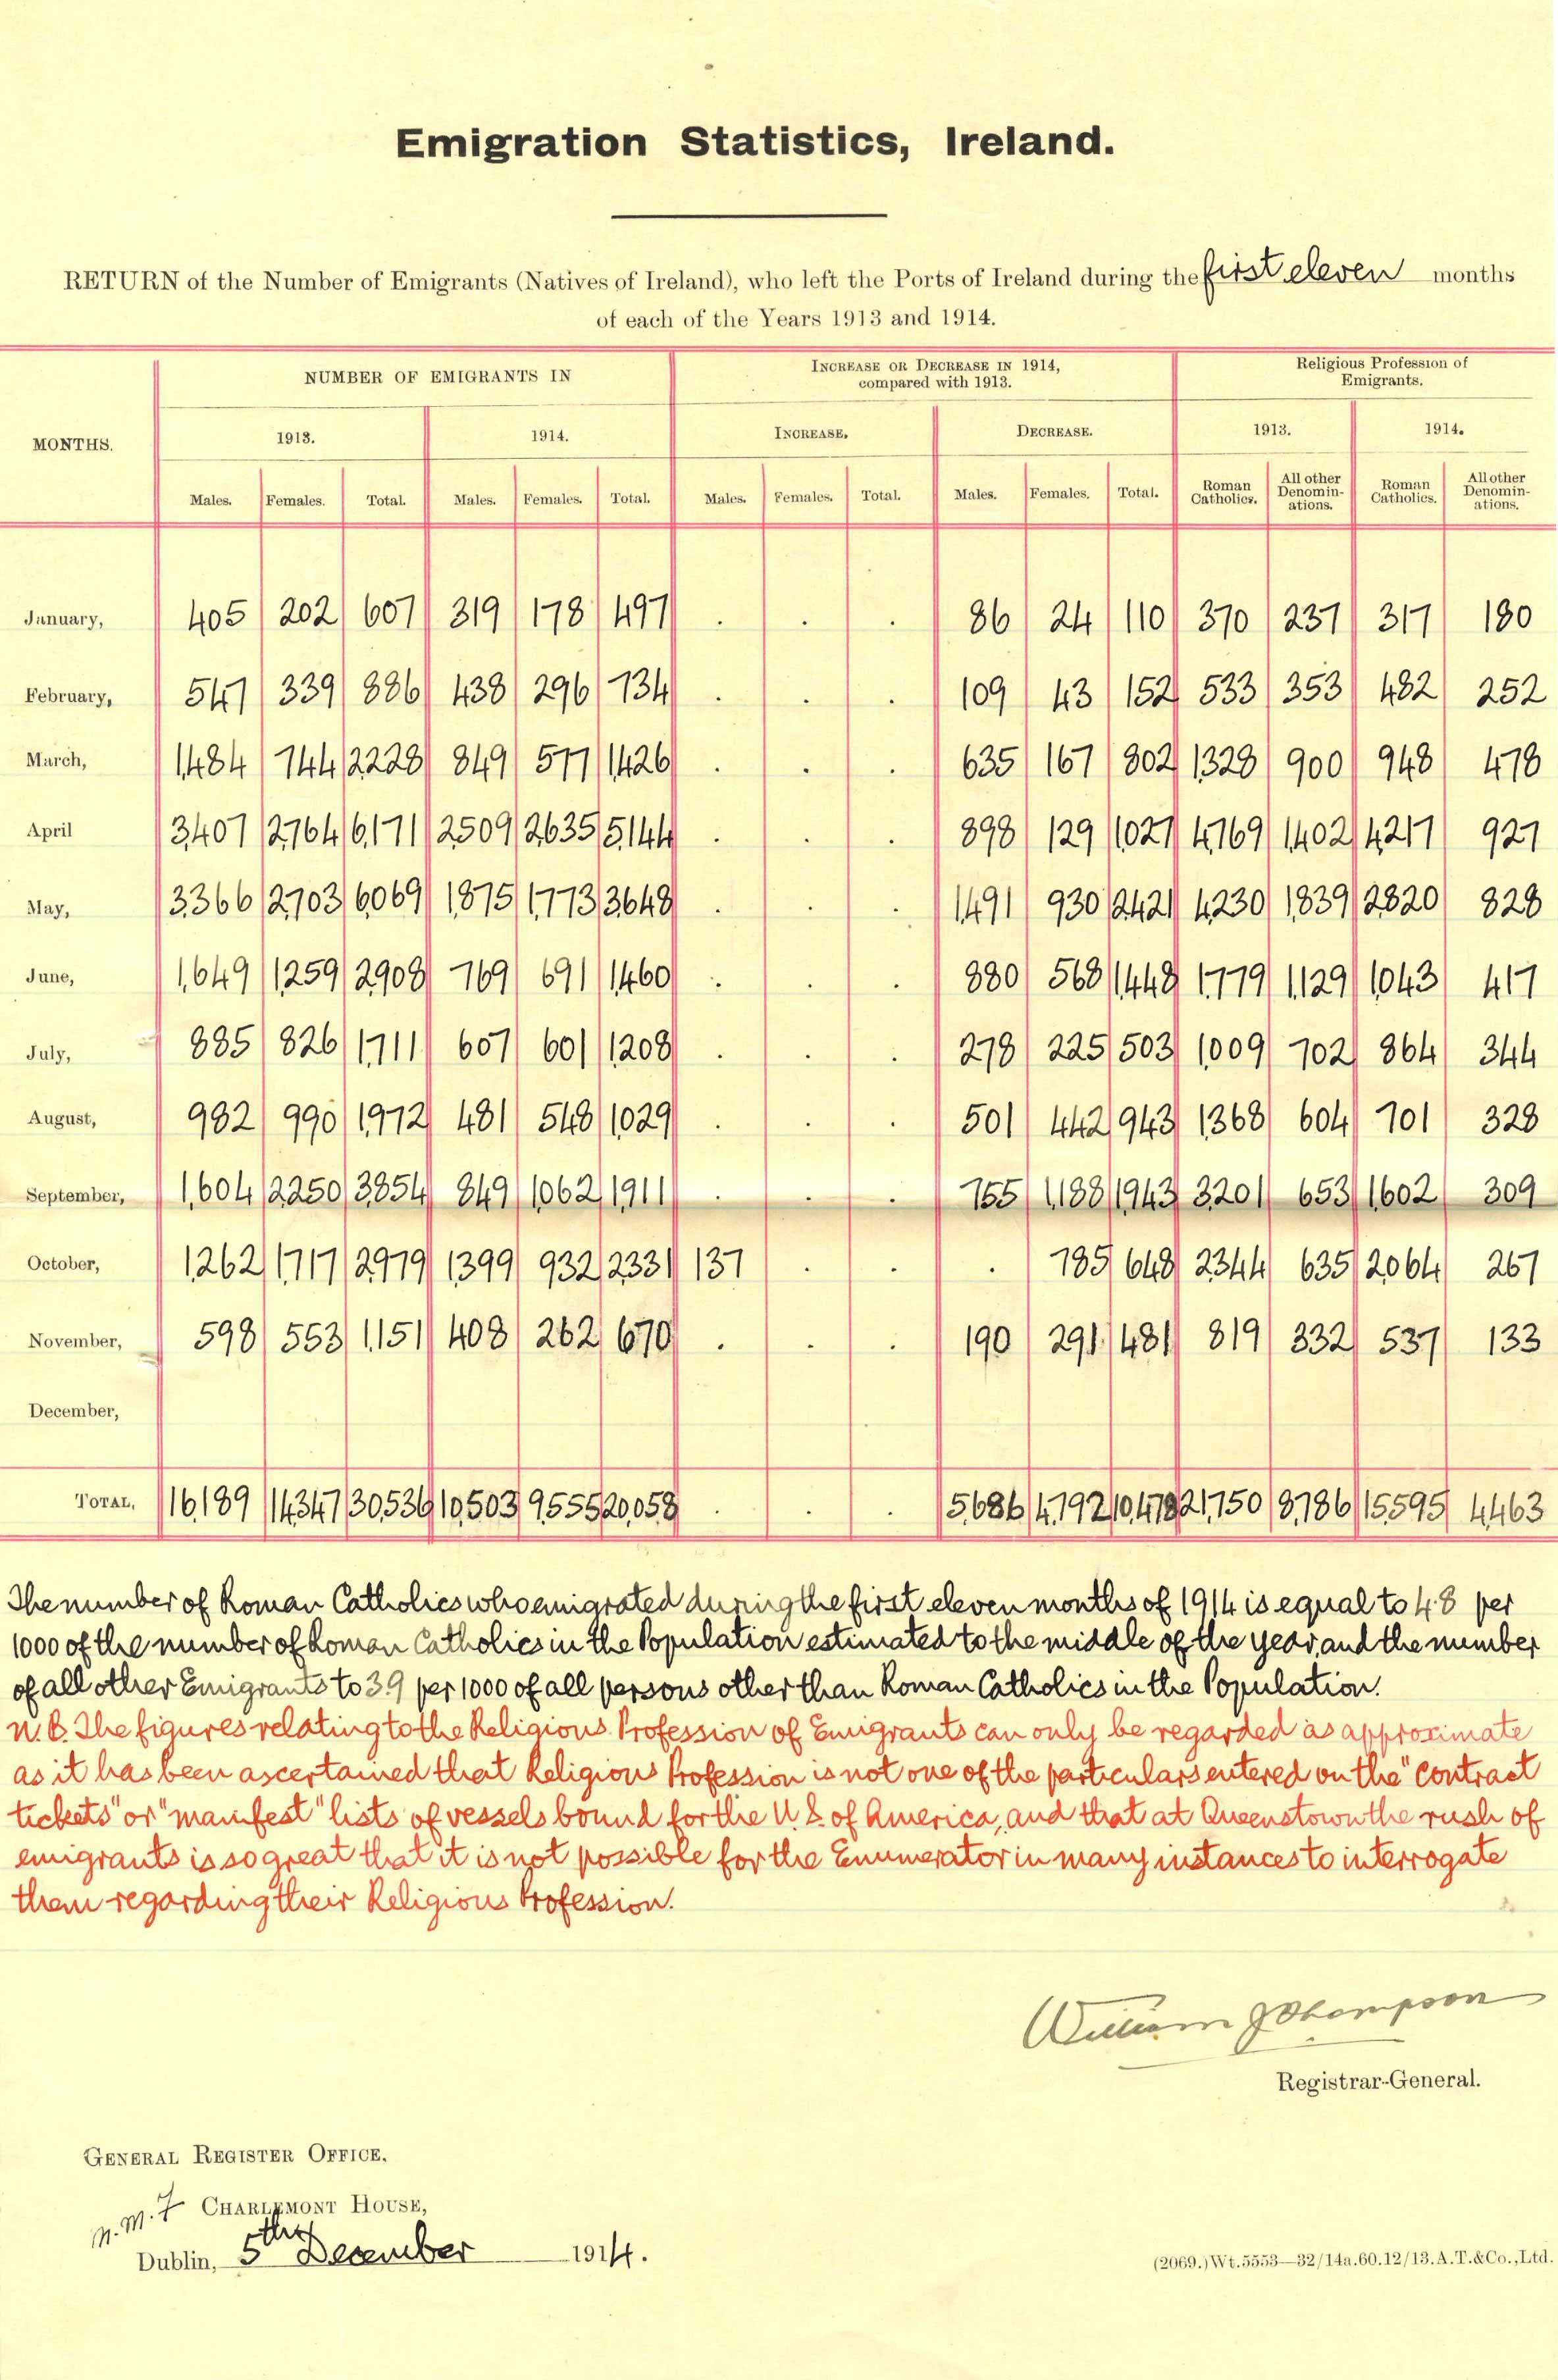 Emigration Statistics, Ireland.
RETURN of the Number of Emigrants (Natives of Ireland), who left the Ports of Ireland during the first eleven months
of each of the Years 1913 and 1914.
MONTHS. NUMBER OF EMIGRANTS IN INCREASE OR DECREASE IN 1914, compared with 1913. Religious Profession of Emigrants.
1913. 1914. INCREASE. DECREASE. 1913. 1914.
Males. Females. Total. Males. Females. Total. Males. Females. Total. Males. Females. Total. Roman Catholics. All other Denominations. Roman Catholics. All other Denominations.
January, 405 202 607 319 178 497 . . . 86 24 110 370 237 317 180
February, 547 339 886 438 296 734 . . . 109 43 152 533 353 482 252
March, 1,484 744 2,228 849 577 1,426 . . . 635 167 802 1,328 900 948 478
April 3,407 2,764 6,171 2,509 2,635 5,144 . . . 898 129 1,027 4,769 1,402 4,217 927
May, 3,366 2,703 6,069 1,875 1,773 3,648 . . . 1,491 930 2,421 4,230 1,839 2,820 828
June, 1,649 1,259 2,908 769 691 1,460 . . . 880 568 1,448 1,779 1,129 1,043 417
July, 885 826 1,711 607 601 1,208 . . . 278 225 503 1,009 702 864 344
August, 982 990 1,972 481 548 1,029 . . . 501 442 943 1,368 604 701 328
September, 1,604 2,250 3,854 849 1,062 1,911 . . . 755 1,188 1,943 3,201 653 1,602 309
October, 1,262 1,717 2,979 1,399 932 2,331 137 . . . 785 648 2,344 635 2,064 267
November, 598 553 1,151 408 262 670 . . . 190 291 481 819 332 537 133
December,
TOTAL, 16,189 14,347 30,536 10,503 9,555 20,058 . . . 5,686 4,792 10,478 21,750 8,786 15,595 4,463
The number of Roman Catholics who emigrated during the first eleven months of 1914 is equal to 4.8 per
1000 of the number of Roman Catholics in the Population estimated to the middle of the year, and the number
of all other Emigrants to 3.9 per 1000 of all persons other than Roman Catholics in the Population.
N.B. The figures relating to the Religious Profession of Emigrants can only be regarded as approximate
as it has been ascertained that Religious Profession is not one of the particulars entered on the "contract
tickets" or "manifest" lists of vessels bound for the U.S. of America, and that at Queenstown the rush of
emigrants is so great that it is not possible for the Enumerator in many instances to interrogate
them regarding their Religious Profession.
William J Thompson
Registrar-General.
GENERAL REGISTER OFFICE,
CHARLEMONT HOUSE,
Dublin, 5th December 1914.
(2069.)Wt.5553—32/14a.60.12/13.A.T.&Co.,Ltd.